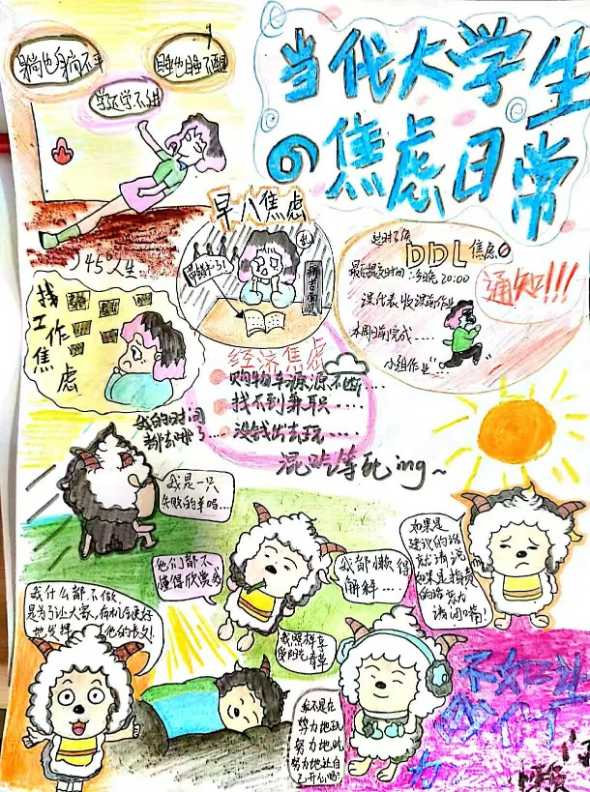 当代大学生
の焦虑日常
躺也躺不平
学不学不进
45°人生
早八焦虑
找
工
作
焦
虑
DDL焦虑
最后提交时间：今晚20:00
通知!!!
课代表收
本周前完成……
小组作业……
经济焦虑
购物车源源不断……
找不到兼职……
没钱出去玩……
混吃等死ing~
我的时间
都去哪了
我是一只
失败的羊吗……
他们都不
懂得欣赏我
我都懒得
解释……
如果是
建议的话
就请说
如果是指责
的话
请闭嘴!
我什么都不做
是为了让大家有机会更好
地发挥
我照样享
受阳光
我不是在
努力地玩
努力地吃
努力地让自
己开心嘛